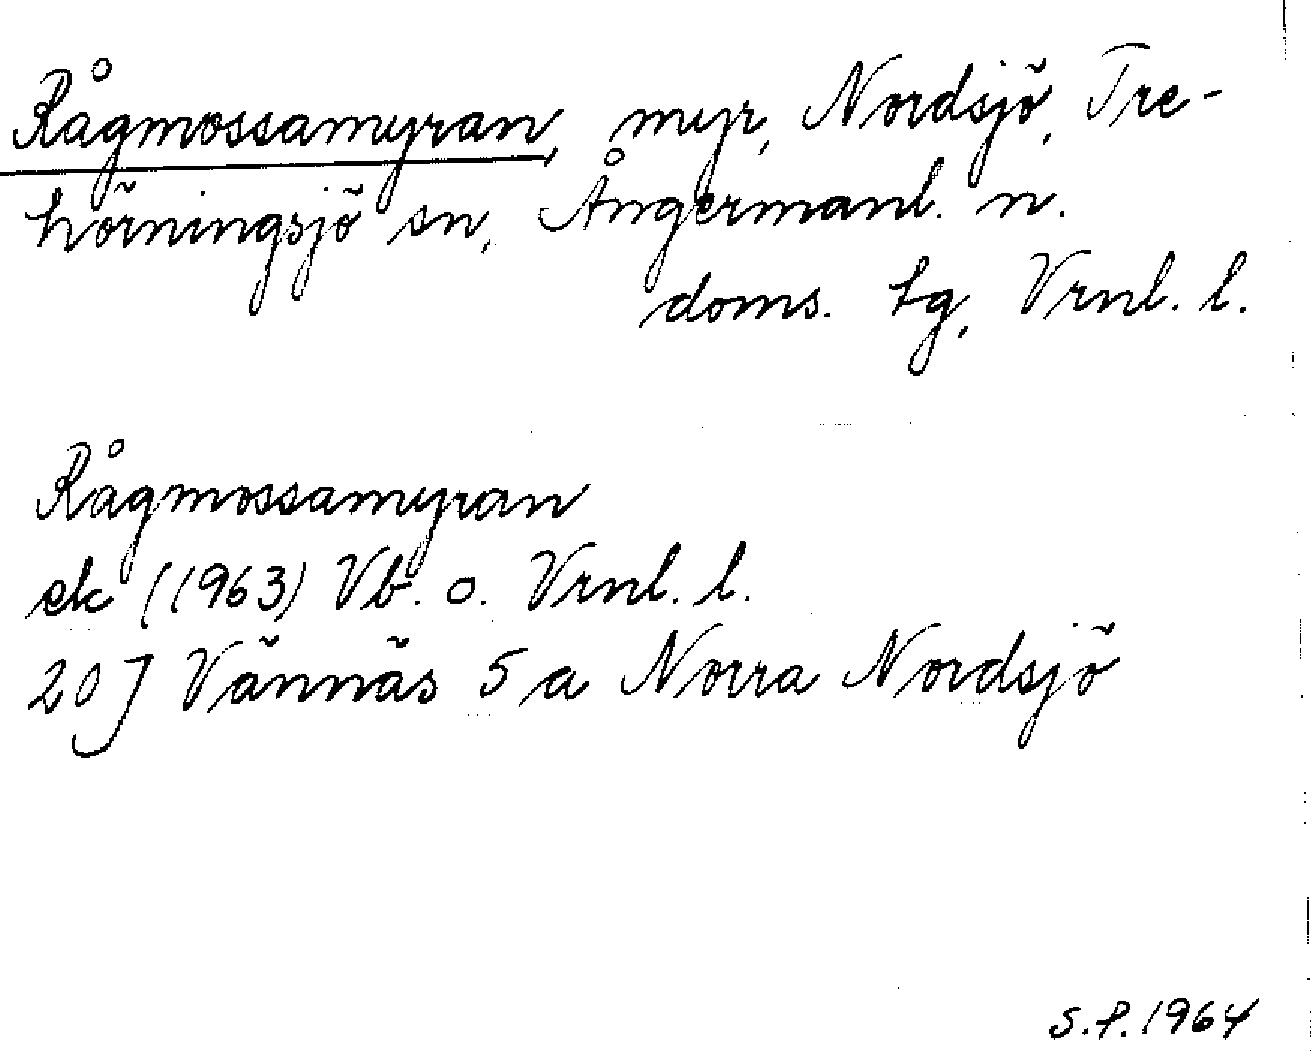 Rågmossamyran, myr, Nordsjö, Tre-
hörningsjö sn, Ångermanl. n.
doms. tg, Vrnl. l.
Rågmossamyran
ek (1963) Vb. o. Vrnl. l.
20J Vännäs 5 a Norra Nordsjö
S.P. 1964